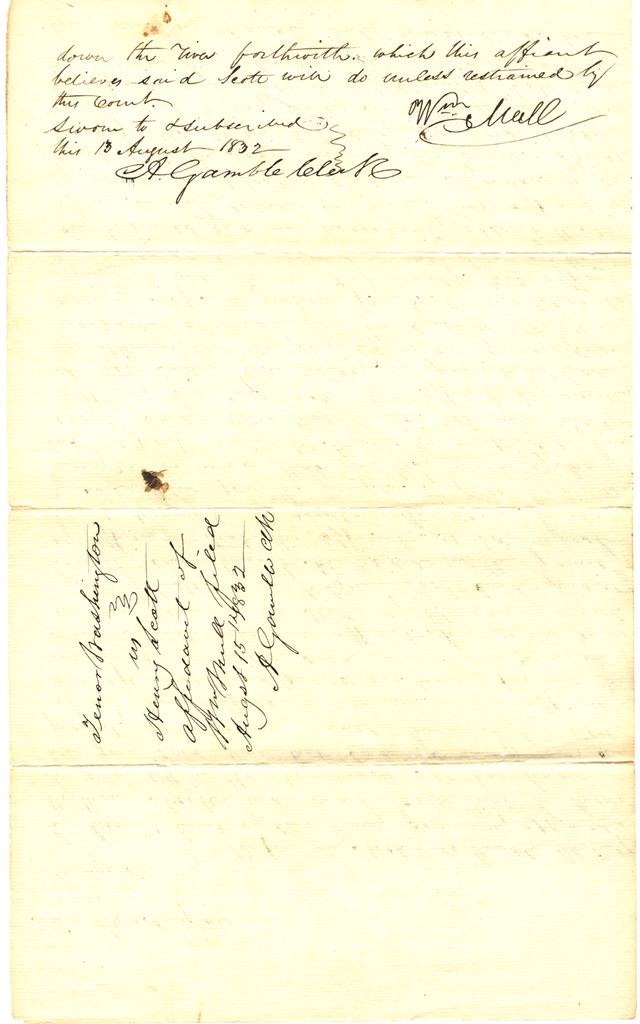 down the river forthwith. which this affiant
believes said Scott will do unless restrained by
this Court.
Sworn to & subscribed
this 13 August 1832
Wm Mull
A. Gamble Clerk
Tenor Washington
vs
Henry Scott
affidavit of
Wm Mull filed
Augst 15th 1832
A Gamble Clk